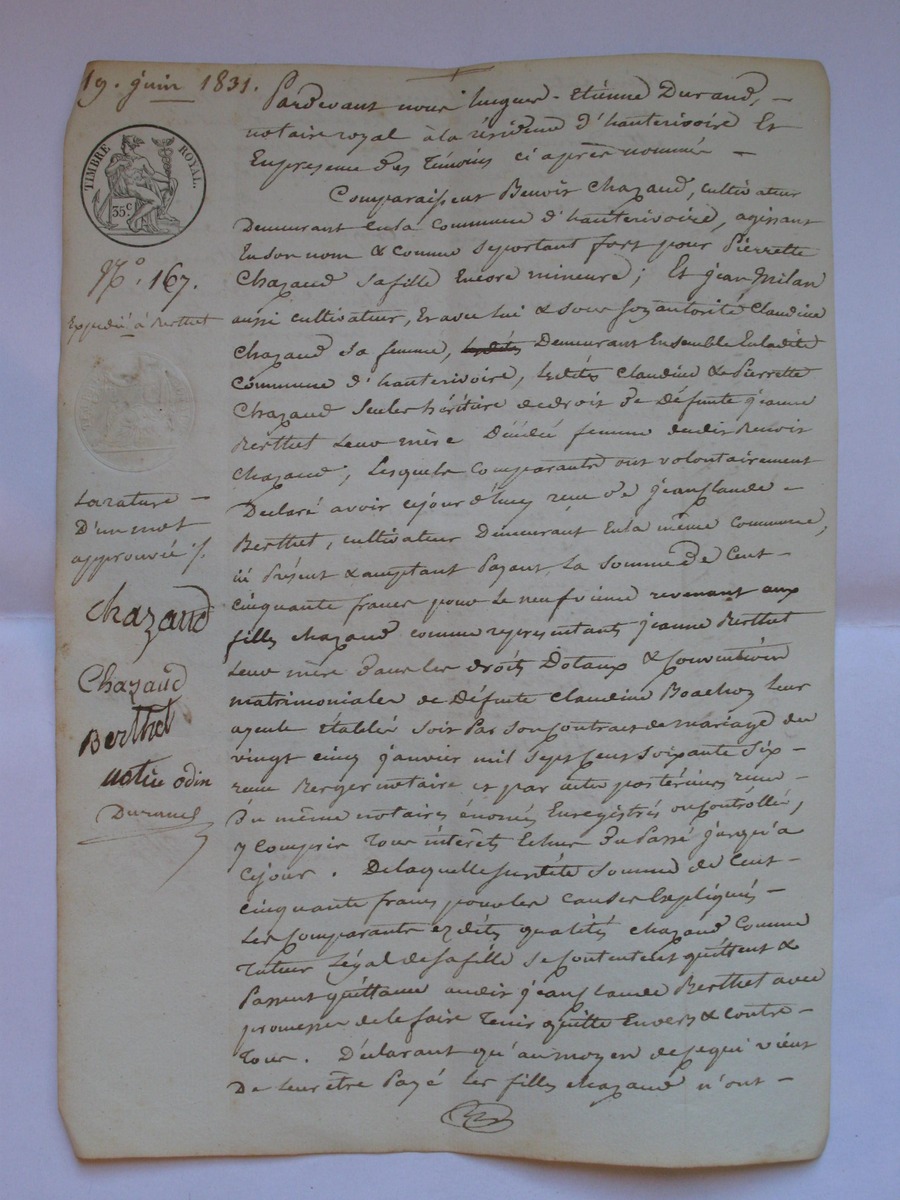 19. juin 1831.
TIMBRE ROYAL.
35c
No. 167.
Expédié à Berthet
La rature
D'un mot
approuvée ./.
Chazaud
Chazaud
Berthet
odin
Durand
Pardevant nous hugues-Etienne Durand,
notaire royal à la résidence d'hauterivoire Et
En presence des Témoins ci après nommés
Comparaissent Benoit Chazaud, cultivateur
Demeurant en la Commune d'hauterivoire, agissant
En son nom & comme se portant fort pour Pierrette
Chazaud sa fille Encore mineure; Et jean Milan
aussi cultivateur, Et avec lui & sous son autorité Claudine
Chazaud sa femme, Demeurant Ensemble En ladite
Commune d'hauterivoire, lesdites Claudine & Pierrette
Chazaud seules héritière de droit de Défunte jeanne
Berthet leur mère Décédée femme dudit Benoit
Chazaud, Lesquels Comparants ont volontairement
Declaré avoir cejourd'huy reçu de jean Claude
Berthet, cultivateur Demeurant En la même commune,
ici Présent & acceptant Payant, La somme de Cent
cinquante francs pour le neufvième revenant aux
filles Chazaud comme représentants jeanne Berthet
Leur mère dans les droits Dotaux & Convention
matrimoniales de Défunte Claudine leur
ayeule Etablis soit Par son Contrat de mariage du
vingt cinq janvier mil sept Cent soixante six
reçu Berger notaire et par actes postérieurs reçus
Du même notaire énoncés Enregistrés ou Controllés,
y Compris Tous intérêts Echus Du Passé jusqu'à
Cejour. De laquelle susdite somme de Cent
cinquante francs pour les causes Expliquées
Les Comparants ezdites qualités Chazaud Comme
Tuteur Légal de sa fille se Contentent quittent &
Passent quittance audit jean Claude Berthet avec
promesse de le faire Tenir quitte Envers & Contre
Tous. Déclarant qu'au moyen de ce qui vient
De leur être Payé Les filles Chazaud n'ont